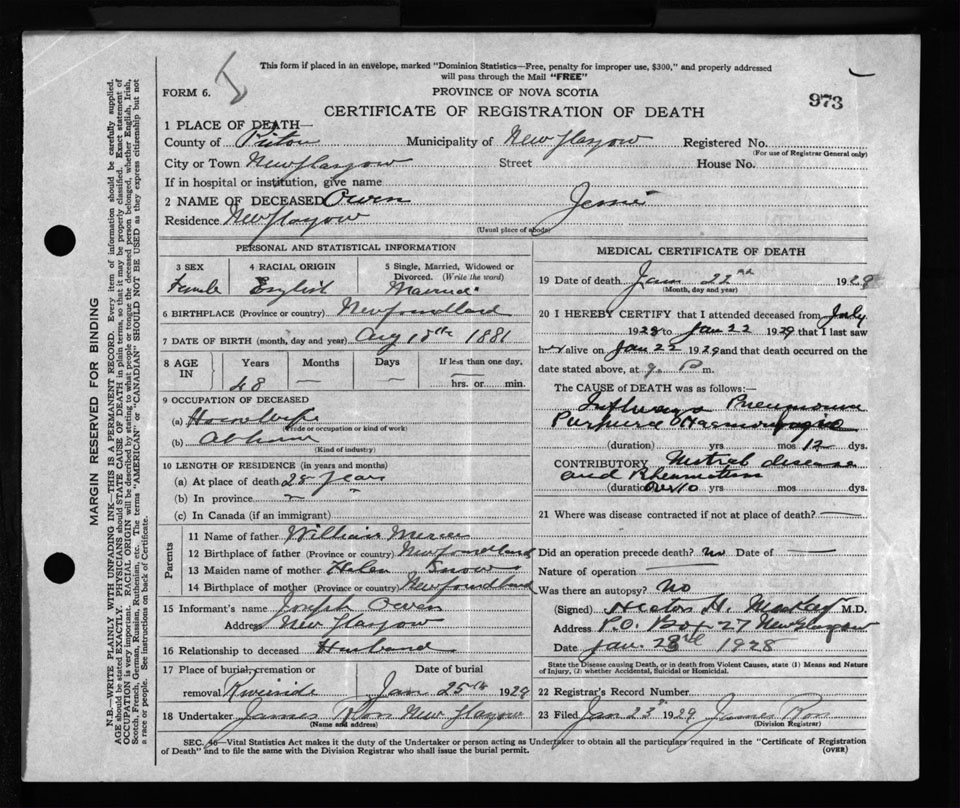 This form if placed in an envelope, marked "Dominion Statistics—Free, penalty for improper use, $300," and properly addressed
will pass through the Mail "FREE"
FORM 6.
PROVINCE OF NOVA SCOTIA
973
CERTIFICATE OF REGISTRATION OF DEATH
1 PLACE OF DEATH—
County of Pictou Municipality of New Glasgow Registered No.
(For use of Registrar General only)
City or Town New Glasgow Street House No.
If in hospital or institution, give name
2 NAME OF DECEASED Owen Jessie
Residence New Glasgow
(Usual place of abode)
PERSONAL AND STATISTICAL INFORMATION
3 SEX 4 RACIAL ORIGIN 5 Single, Married, Widowed or Divorced. (Write the word)
Female English Married
6 BIRTHPLACE (Province or country) Newfoundland
7 DATE OF BIRTH (month, day and year) Aug 15th 1881
8 AGE IN Years Months Days If less than one day,
48 — — hrs. or min.
9 OCCUPATION OF DECEASED
(a) Housewife
(Trade or occupation or kind of work)
(b) At home
(Kind of industry)
10 LENGTH OF RESIDENCE (in years and months)
(a) At place of death 28 years
(b) In province " "
(c) In Canada (if an immigrant)
Parents
11 Name of father William Mercer
12 Birthplace of father (Province or country) Newfoundland
13 Maiden name of mother Helen Snow
14 Birthplace of mother (Province or country) Newfoundland
15 Informant's name Joseph Owen
Address New Glasgow
16 Relationship to deceased Husband
17 Place of burial, cremation or Date of burial
removal Riverside Jan 25th 1929
18 Undertaker James Ross New Glasgow
(Name and address)
MEDICAL CERTIFICATE OF DEATH
19 Date of death Jan 22nd 1929
(Month, day and year)
20 I HEREBY CERTIFY that I attended deceased from July
1928 to Jan 22 1929 and that I last saw
her alive on Jan 22 1929 and that death occurred on the
date stated above, at 9. P m.
The CAUSE of DEATH was as follows:—
Influenza Pneumonia
Purpura Haemorrhagica
(duration) yrs mos 12 dys.
CONTRIBUTORY Mitral disease
and Rheumatism
(duration) over 10 yrs mos dys.
21 Where was disease contracted if not at place of death? —
Did an operation precede death? No Date of —
Nature of operation —
Was there an autopsy? No
(Signed) Hector H. MacKay M.D.
Address P.O. Box 27 New Glasgow
Date Jan. 23rd 1928
State the Disease causing Death, or in death from Violent Causes, state (1) Means and Nature
of Injury, (2) whether Accidental, Suicidal or Homicidal.
22 Registrar's Record Number
23 Filed Jan 23rd 1929 James Ross
(Division Registrar)
SEC. 46—Vital Statistics Act makes it the duty of the Undertaker or person acting as Undertaker to obtain all the particulars required in the "Certificate of Registration
of Death" and to file the same with the Division Registrar who shall issue the burial permit.
(OVER)
MARGIN RESERVED FOR BINDING
N.B.—WRITE PLAINLY WITH UNFADING INK—THIS IS A PERMANENT RECORD. Every item of information should be carefully supplied.
AGE should be stated EXACTLY. PHYSICIANS should STATE CAUSE OF DEATH in plain terms, so that it may be properly classified. Exact statement of
OCCUPATION is very important. RACIAL ORIGIN will be described by stating to what people or tongue the deceased person belonged, whether English, Irish,
Scotch, French, German, Russian, Ruthenian, etc. The terms "AMERICAN" or "CANADIAN" SHOULD NOT BE USED as they express citizenship but not
a race or people. See instructions on back of Certificate.